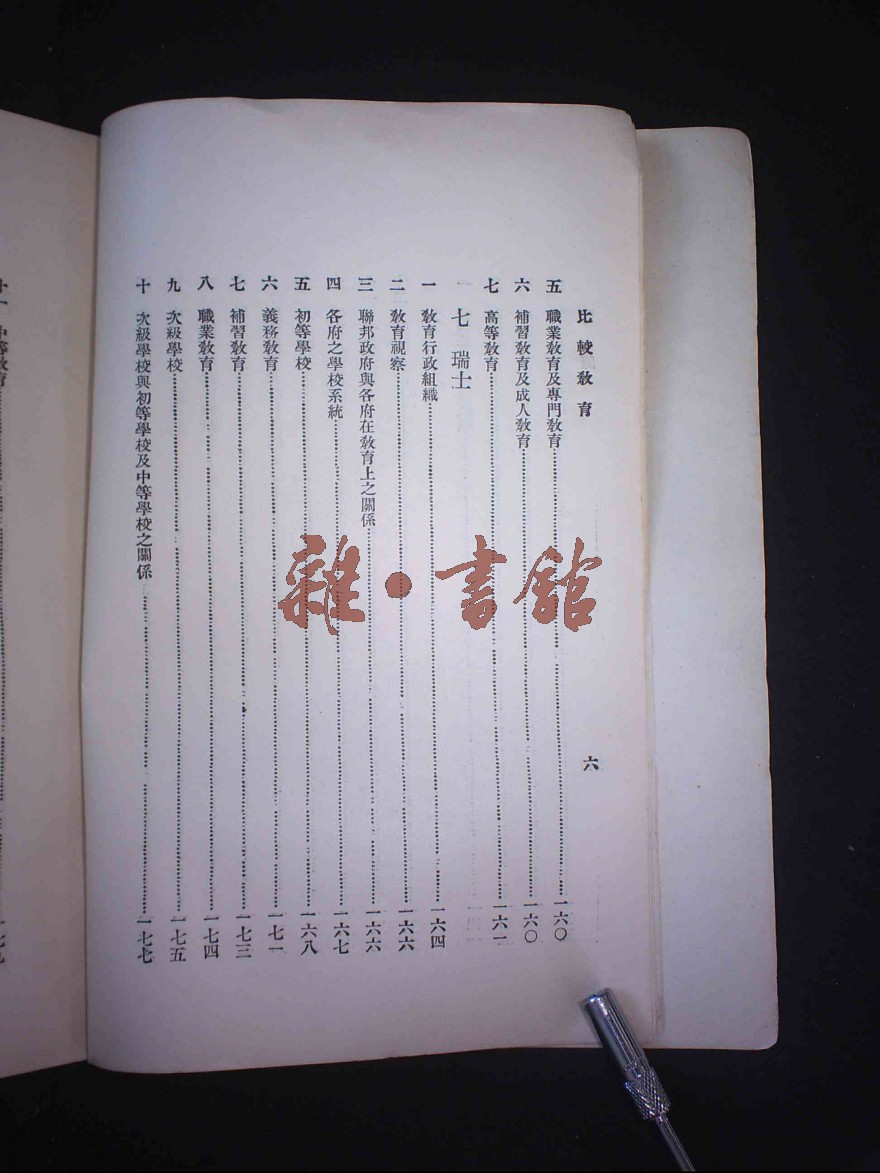 比較教育
六
五 職業教育及專門教育 一六〇
六 補習教育及成人教育 一六〇
七 高等教育 一六一
七 瑞士
一 教育行政組織 一六四
二 教育視察 一六六
三 聯邦政府與各府在教育上之關係 一六六
四 各府之學校系統 一六七
五 初等學校 一六八
六 義務教育 一七一
七 補習教育 一七三
八 職業教育 一七四
九 次級學校 一七五
十 次級學校與初等學校及中等學校之關係 一七七
十一 中等教育 一七九
雜·書館